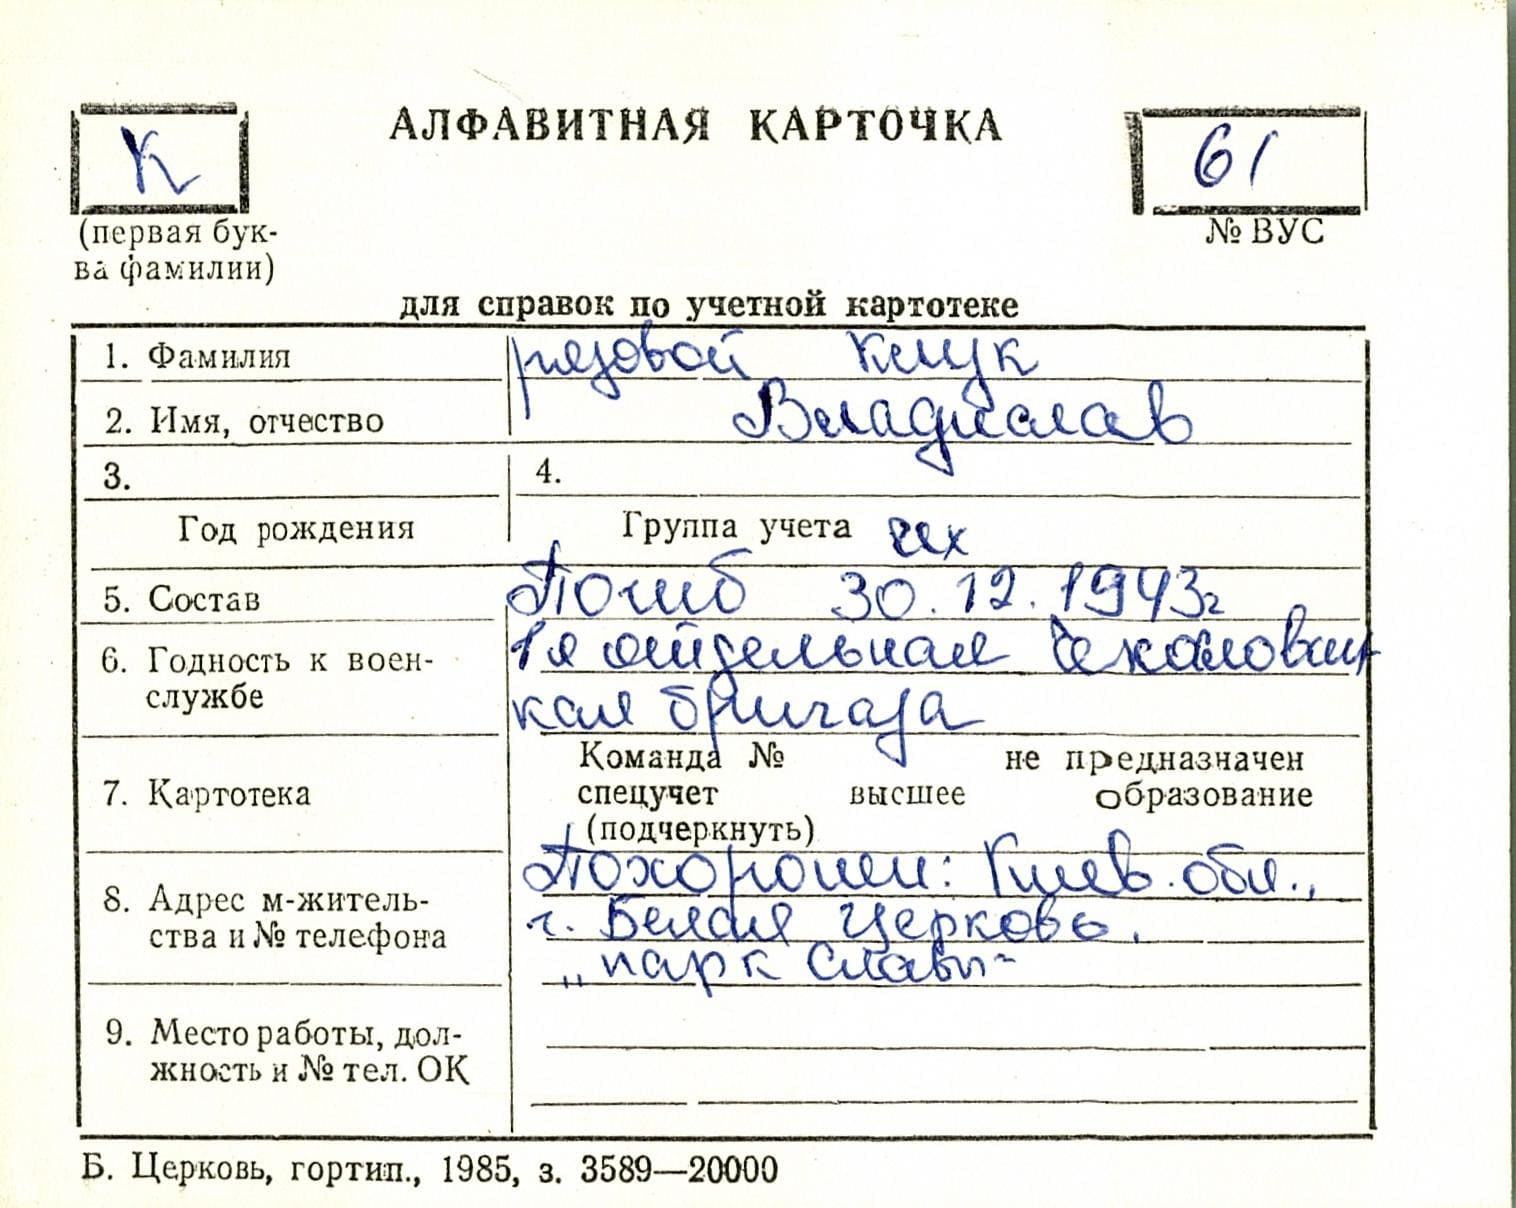 К
АЛФАВИТНАЯ КАРТОЧКА
61
(первая бук-
ва фамилии)
№ ВУС
для справок по учетной картотеке
1. Фамилия рядовой
2. Имя, отчество Владислав
3. 4.
Год рождения Группа учета чех
5. Состав Погиб 30.12.1943г
6. Годность к воен-
службе
1я отдельная
кая бригада
7. Картотека
Команда № не предназначен
спецучет высшее образование
(подчеркнуть)
8. Адрес м-житель-
ства и № телефона
Похоронен: Киев. обл.,
г. Белая Церковь.
„парк Славы"
9. Место работы, дол-
жность и № тел. ОК
Б. Церковь, гортип., 1985, з. 3589—20000